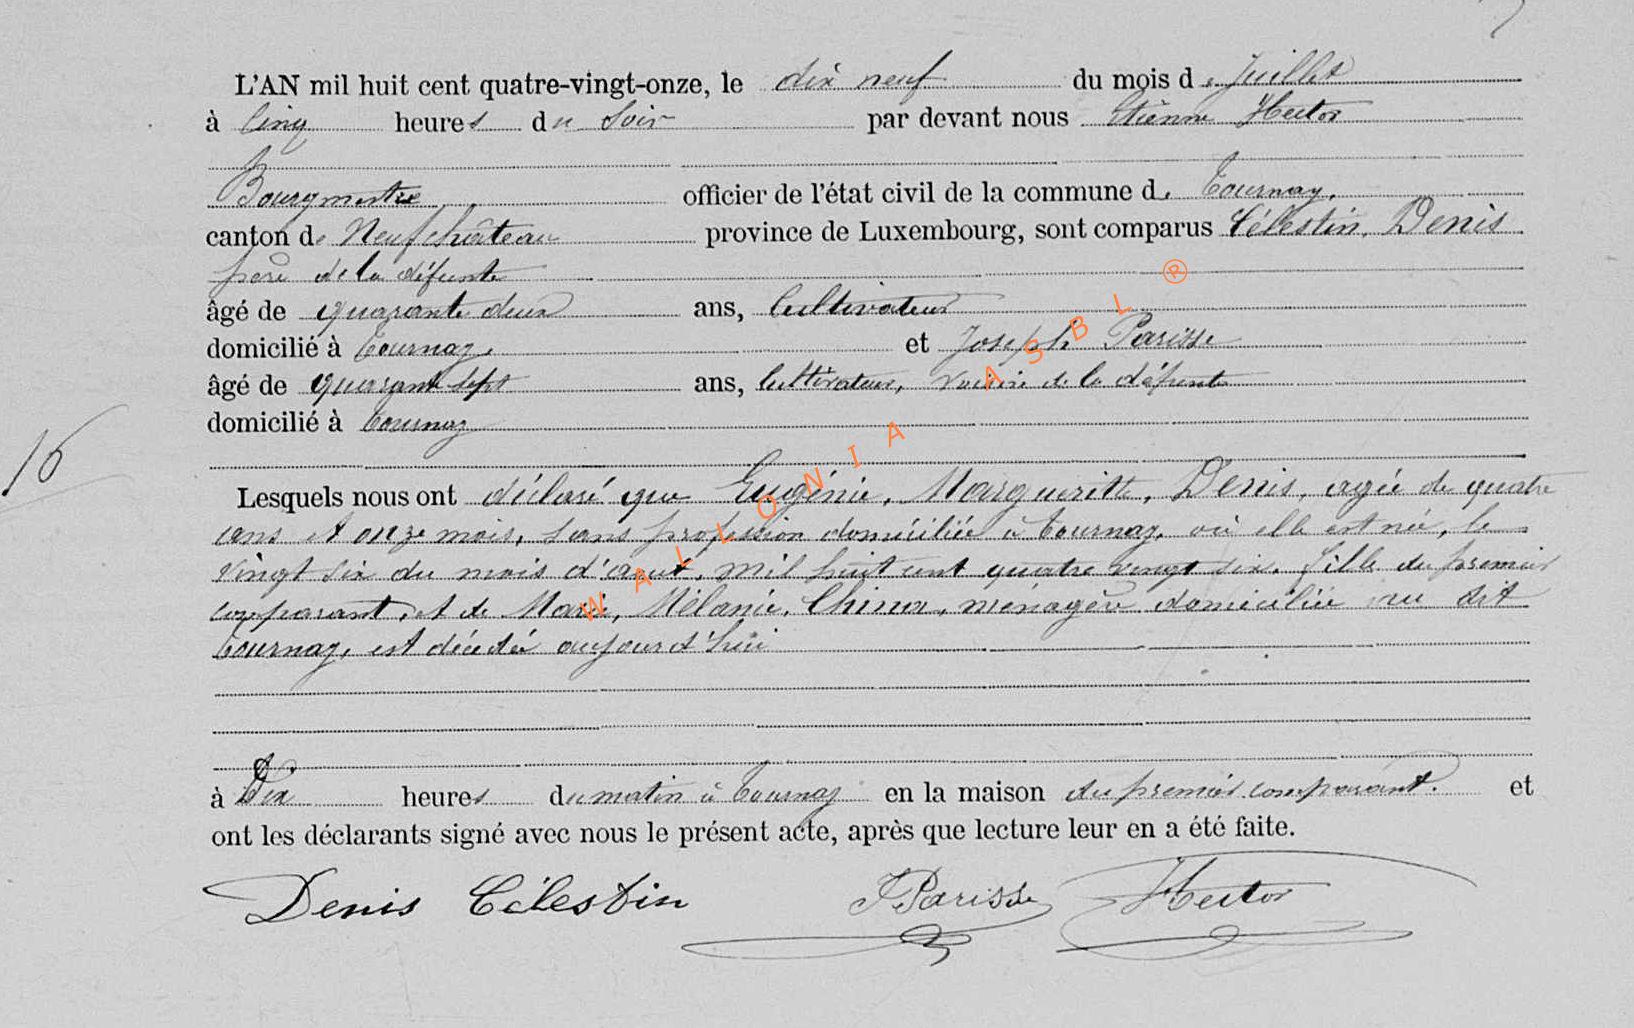 L'AN mil huit cent quatre-vingt-onze, le dix neuf du mois de Juillet
à cinq heures du Soir par devant nous Etienne Hector
Bourgmestre officier de l'état civil de la commune de Tournay,
canton de Neufchâteau province de Luxembourg, sont comparus Célestin, Denis
père de la défunte
âgé de quarante deux ans, Cultivateur
domicilié à Tournay, et Joseph Parisse
âgé de quarante sept ans, Cultivateur, voisin de la défunte
domicilié à Tournay
16
Lesquels nous ont déclaré que Eugénie, Marguerite, Denis, agée de quatre
ans et onze mois, sans profession domiciliée à Tournay, où elle est née, le
vingt six du mois d'aout, mil huit cent quatre vingt six, fille du premier
comparant, et de Marie, Mélanie, China, menagère domiciliée au dit
Tournay, est décédée aujourd'hui
à Dix heures du matin à Tournay en la maison du premier comparant. et
ont les déclarants signé avec nous le présent acte, après que lecture leur en a été faite.
Denis Célestin J Parisse Hector
WALLONIA ASBL ®